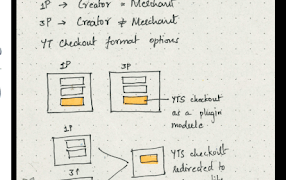 1P → Creator = Merchant
3P → Creator ≠ Merchant
YT Checkout format options
1P 3P
YTS checkout
as a plugin
module
1P
3P
YTS checkout
redirected to